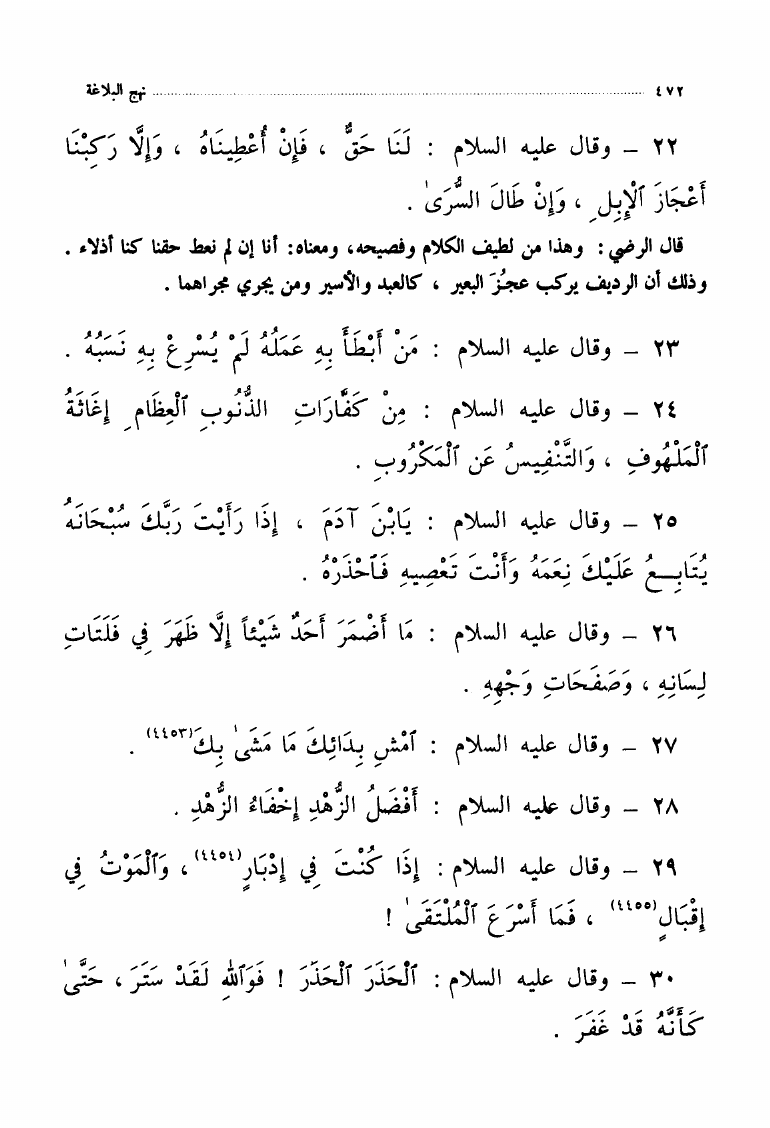 ٤٧٢ ........ نهج البلاغة
٢٢ – وقال عليه السلام : لَنَا حَقٌّ ، فَإِنْ أُعْطِينَاهُ ، وَإِلَّا رَكِبْنَا
أَعْجَازَ ٱلْإِبِلِ ، وَإِنْ طَالَ السُّرَىٰ .
قال الرضي : وهذا من لطيف الكلام وفصيحه، ومعناه: أنا إن لم نعط حقنا كنا أذلاء .
وذلك أن الرديف يركب عجُزَ البعير ، كالعبد والأسير ومن يجري مجراهما .
٢٣ – وقال عليه السلام : مَنْ أَبْطَأَ بِهِ عَمَلُهُ لَمْ يُسْرِعْ بِهِ نَسَبُهُ .
٢٤ – وقال عليه السلام : مِنْ كَفَّارَاتِ الذُّنُوبِ ٱلْعِظَامِ إِغَاثَةُ
ٱلْمَلْهُوفِ ، وَالتَّنْفِيسُ عَنِ ٱلْمَكْرُوبِ .
٢٥ – وقال عليه السلام : يَابْنَ آدَمَ ، إِذَا رَأَيْتَ رَبَّكَ سُبْحَانَهُ
يُتَابِعُ عَلَيْكَ نِعَمَهُ وَأَنْتَ تَعْصِيهِ فَٱحْذَرْهُ .
٢٦ – وقال عليه السلام : مَا أَضْمَرَ أَحَدٌ شَيْئاً إِلَّا ظَهَرَ فِي فَلَتَاتِ
لِسَانِهِ ، وَصَفَحَاتِ وَجْهِهِ .
٢٧ – وقال عليه السلام : ٱمْشِ بِدَائِكَ مَا مَشَىٰ بِكَ(٤٤٥٣) .
٢٨ – وقال عليه السلام : أَفْضَلُ الزُّهْدِ إِخْفَاءُ الزُّهْدِ .
٢٩ – وقال عليه السلام : إِذَا كُنْتَ فِي إِدْبَارٍ(٤٤٥٤) ، وَٱلْمَوْتُ فِي
إِقْبَالٍ(٤٤٥٥) ، فَمَا أَسْرَعَ ٱلْمُلْتَقَىٰ !
٣٠ – وقال عليه السلام : ٱلْحَذَرَ ٱلْحَذَرَ ! فَوَٱللهِ لَقَدْ سَتَرَ ، حَتَّىٰ
كَأَنَّهُ قَدْ غَفَرَ .